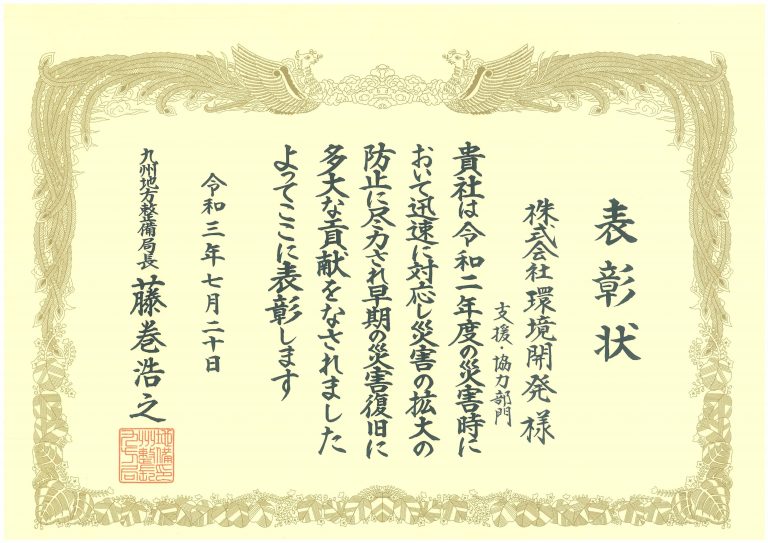 表彰状
株式会社環境開発様
支援・協力部門
貴社は令和二年度の災害時に
おいて迅速に対応し災害の拡大の
防止に尽力され早期の災害復旧に
多大な貢献をなされました
よってここに表彰します
令和三年七月二十日
九州地方整備局長 藤巻浩之